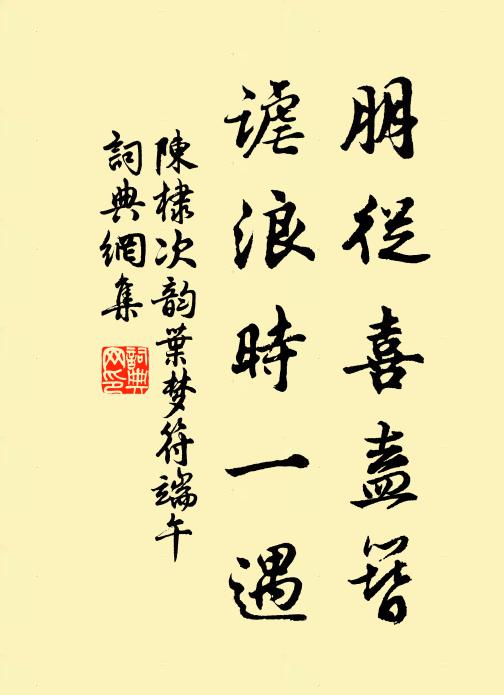 朋從喜盍簪
謔浪時一遇
陳棣次韵葉梦符端午
詞典網集
詞典
网印